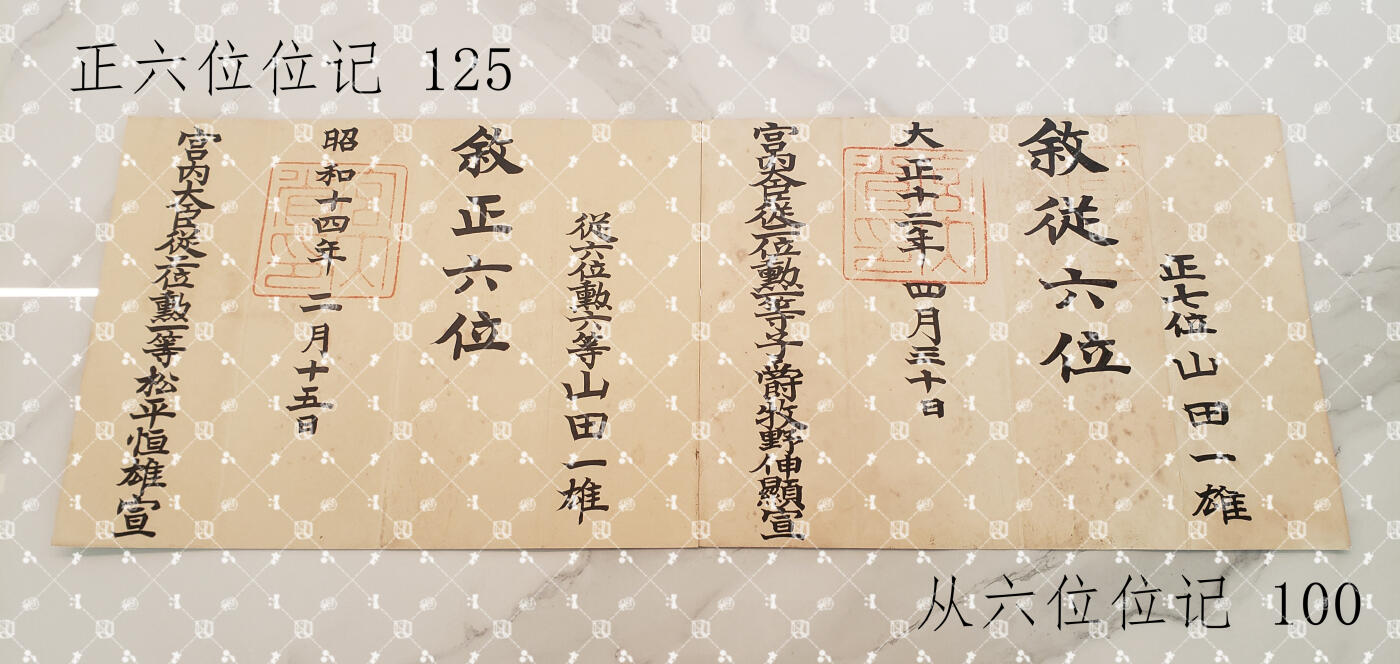 正六位位记 125
正七位山田一雄
敘從六位
大正十二年四月三十日
宮内大臣從二位勳一等子爵牧野伸顯宣
從六位勳六等山田一雄
敘正六位
昭和十四年二月十五日
宮内大臣從二位勳一等松平恒雄宣
从六位位记 100